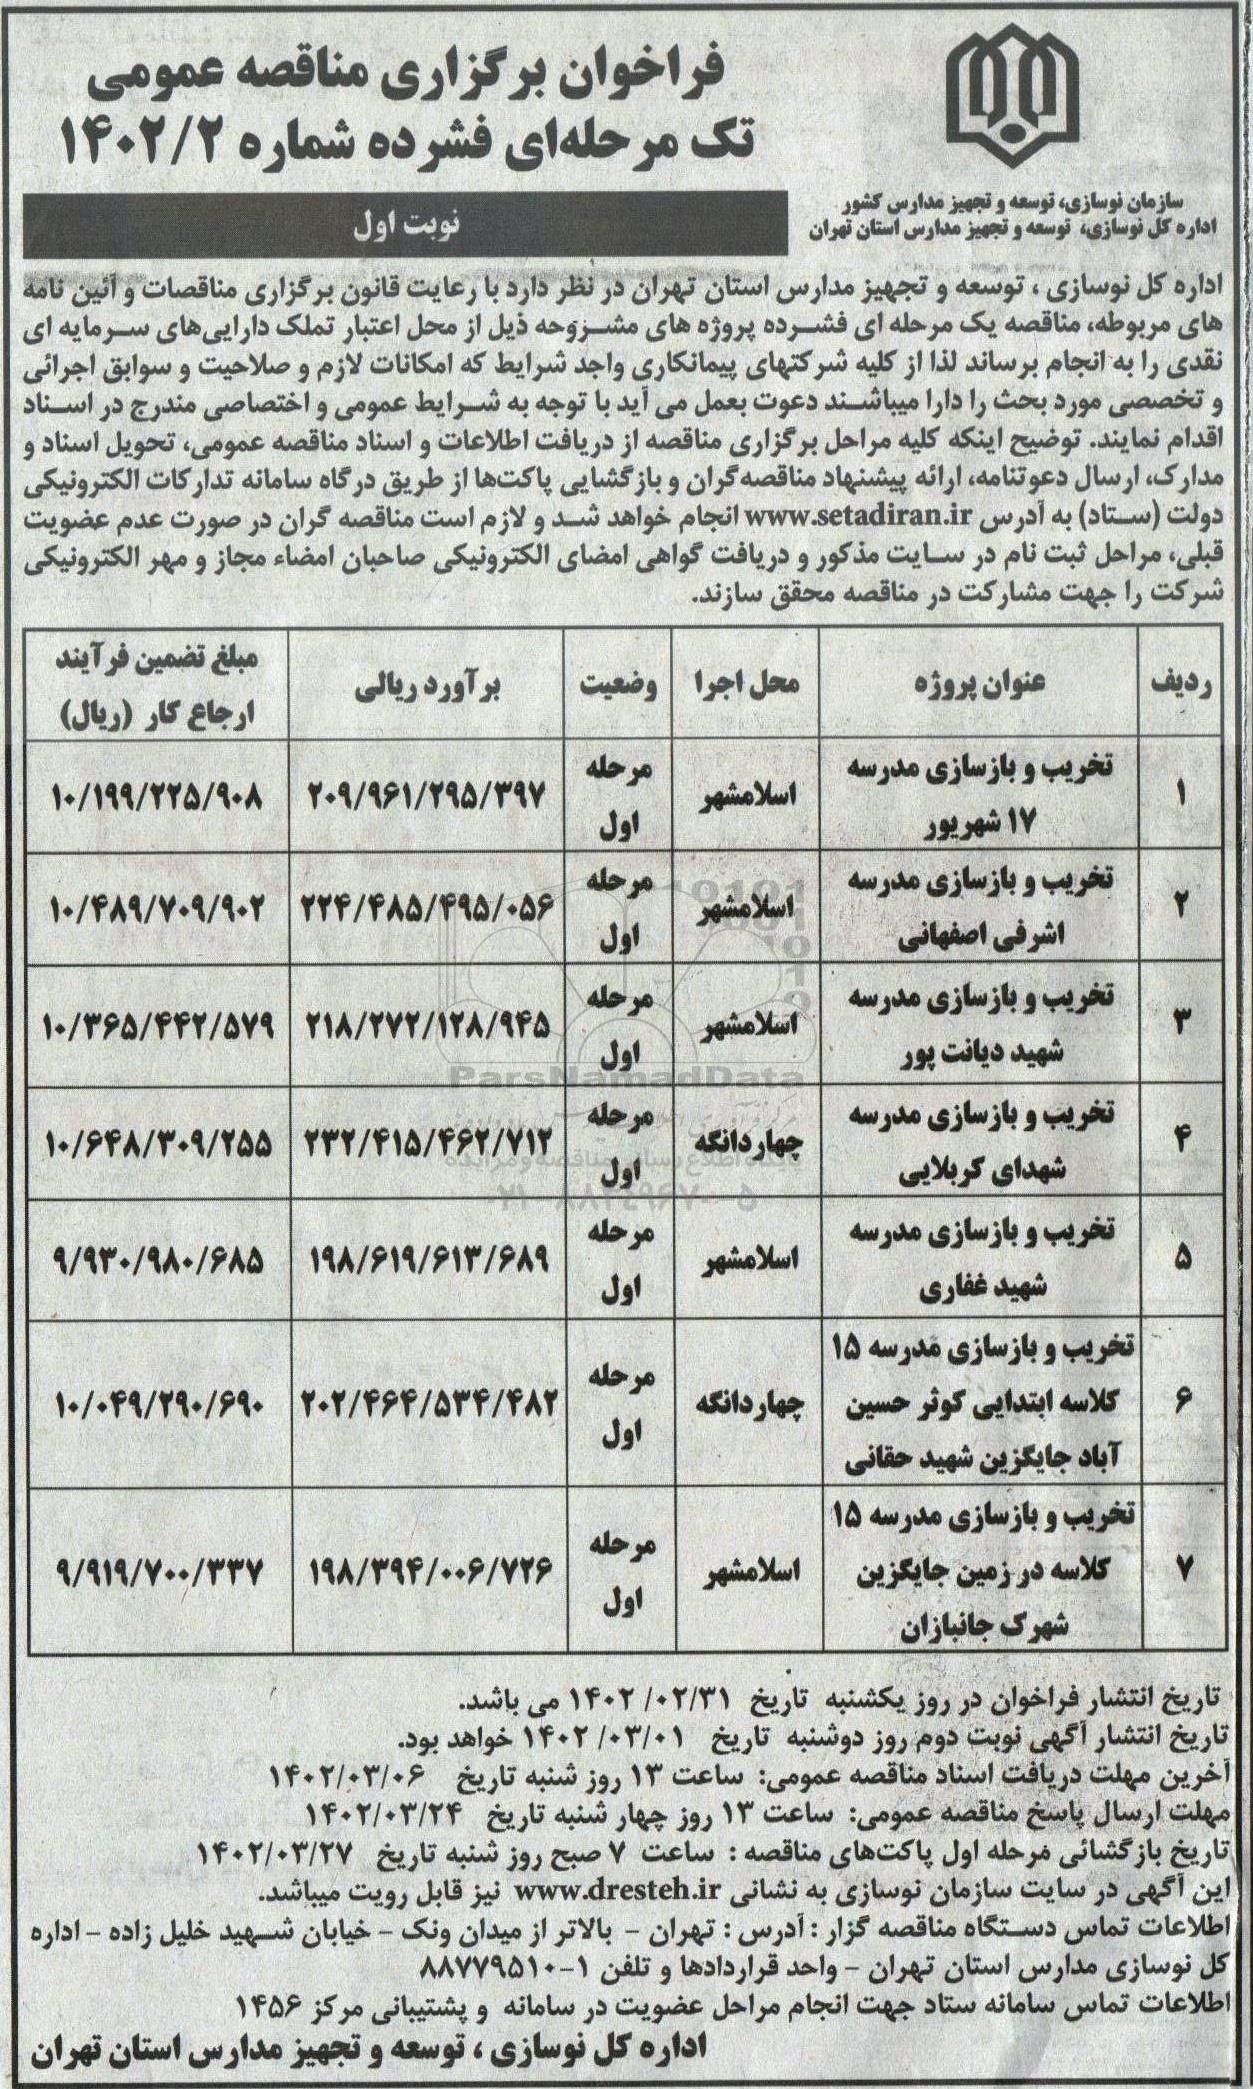 فراخوان برگزاری مناقصه عمومی
تک مرحله‌ای فشرده شماره ۱۴۰۲/۲
سازمان نوسازی، توسعه و تجهیز مدارس کشور
اداره کل نوسازی، توسعه و تجهیز مدارس استان تهران
نوبت اول
اداره کل نوسازی ، توسعه و تجهیز مدارس استان تهران در نظر دارد با رعایت قانون برگزاری مناقصات و آئین نامه
های مربوطه، مناقصه یک مرحله ای فشرده پروژه های مشروحه ذیل از محل اعتبار تملک دارایی‌های سرمایه ای
نقدی را به انجام برساند لذا از کلیه شرکتهای پیمانکاری واجد شرایط که امکانات لازم و صلاحیت و سوابق اجرائی
و تخصصی مورد بحث را دارا میباشند دعوت بعمل می آید با توجه به شرایط عمومی و اختصاصی مندرج در اسناد
اقدام نمایند. توضیح اینکه کلیه مراحل برگزاری مناقصه از دریافت اطلاعات و اسناد مناقصه عمومی، تحویل اسناد و
مدارک، ارسال دعوتنامه، ارائه پیشنهاد مناقصه‌گران و بازگشایی پاکت‌ها از طریق درگاه سامانه تدارکات الکترونیکی
دولت (ستاد) به آدرس www.setadiran.ir انجام خواهد شد و لازم است مناقصه گران در صورت عدم عضویت
قبلی، مراحل ثبت نام در سایت مذکور و دریافت گواهی امضای الکترونیکی صاحبان امضاء مجاز و مهر الکترونیکی
شرکت را جهت مشارکت در مناقصه محقق سازند.
ردیف عنوان پروژه محل اجرا وضعیت برآورد ریالی مبلغ تضمین فرآیند
ارجاع کار (ریال)
۱ تخریب و بازسازی مدرسه اسلامشهر مرحله ۲۰۹/۹۶۱/۲۹۵/۳۹۷ ۱۰/۱۹۹/۲۲۵/۹۰۸
۱۷ شهریور اول
۲ تخریب و بازسازی مدرسه اسلامشهر مرحله ۲۲۴/۴۸۵/۴۹۵/۰۵۶ ۱۰/۴۸۹/۷۰۹/۹۰۲
اشرفی اصفهانی اول
۳ تخریب و بازسازی مدرسه اسلامشهر مرحله ۲۱۸/۲۷۲/۱۲۸/۹۴۵ ۱۰/۳۶۵/۴۴۲/۵۷۹
شهید دیانت پور اول
ParsNamadData
۴ تخریب و بازسازی مدرسه چهاردانگه مرحله ۲۳۲/۴۱۵/۴۶۲/۷۱۲ ۱۰/۶۴۸/۳۰۹/۲۵۵
شهدای کربلایی اول
۵ تخریب و بازسازی مدرسه اسلامشهر مرحله ۱۹۸/۶۱۹/۶۱۳/۶۸۹ ۹/۹۳۰/۹۸۰/۶۸۵
شهید غفاری اول
۶ تخریب و بازسازی مدرسه ۱۵ چهاردانگه مرحله ۲۰۲/۴۶۴/۵۳۴/۴۸۲ ۱۰/۰۴۹/۲۹۰/۶۹۰
کلاسه ابتدایی کوثر حسین اول
آباد جایگزین شهید حقانی
۷ تخریب و بازسازی مدرسه ۱۵ اسلامشهر مرحله ۱۹۸/۳۹۴/۰۰۶/۷۲۶ ۹/۹۱۹/۷۰۰/۳۳۷
کلاسه در زمین جایگزین اول
شهرک جانبازان
تاریخ انتشار فراخوان در روز یکشنبه تاریخ ۱۴۰۲/۰۲/۳۱ می باشد.
تاریخ انتشار آگهی نوبت دوم روز دوشنبه تاریخ ۱۴۰۲/۰۳/۰۱ خواهد بود.
آخرین مهلت دریافت اسناد مناقصه عمومی: ساعت ۱۳ روز شنبه تاریخ ۱۴۰۲/۰۳/۰۶
مهلت ارسال پاسخ مناقصه عمومی: ساعت ۱۳ روز چهار شنبه تاریخ ۱۴۰۲/۰۳/۲۴
تاریخ بازگشائی مرحله اول پاکت‌های مناقصه : ساعت ۷ صبح روز شنبه تاریخ ۱۴۰۲/۰۳/۲۷
این آگهی در سایت سازمان نوسازی به نشانی www.dresteh.ir نیز قابل رویت میباشد.
اطلاعات تماس دستگاه مناقصه گزار : آدرس : تهران - بالاتر از میدان ونک - خیابان شهید خلیل زاده - اداره
کل نوسازی مدارس استان تهران - واحد قراردادها و تلفن ۱-۸۸۷۷۹۵۱۰
اطلاعات تماس سامانه ستاد جهت انجام مراحل عضویت در سامانه و پشتیبانی مرکز ۱۴۵۶
اداره کل نوسازی ، توسعه و تجهیز مدارس استان تهران